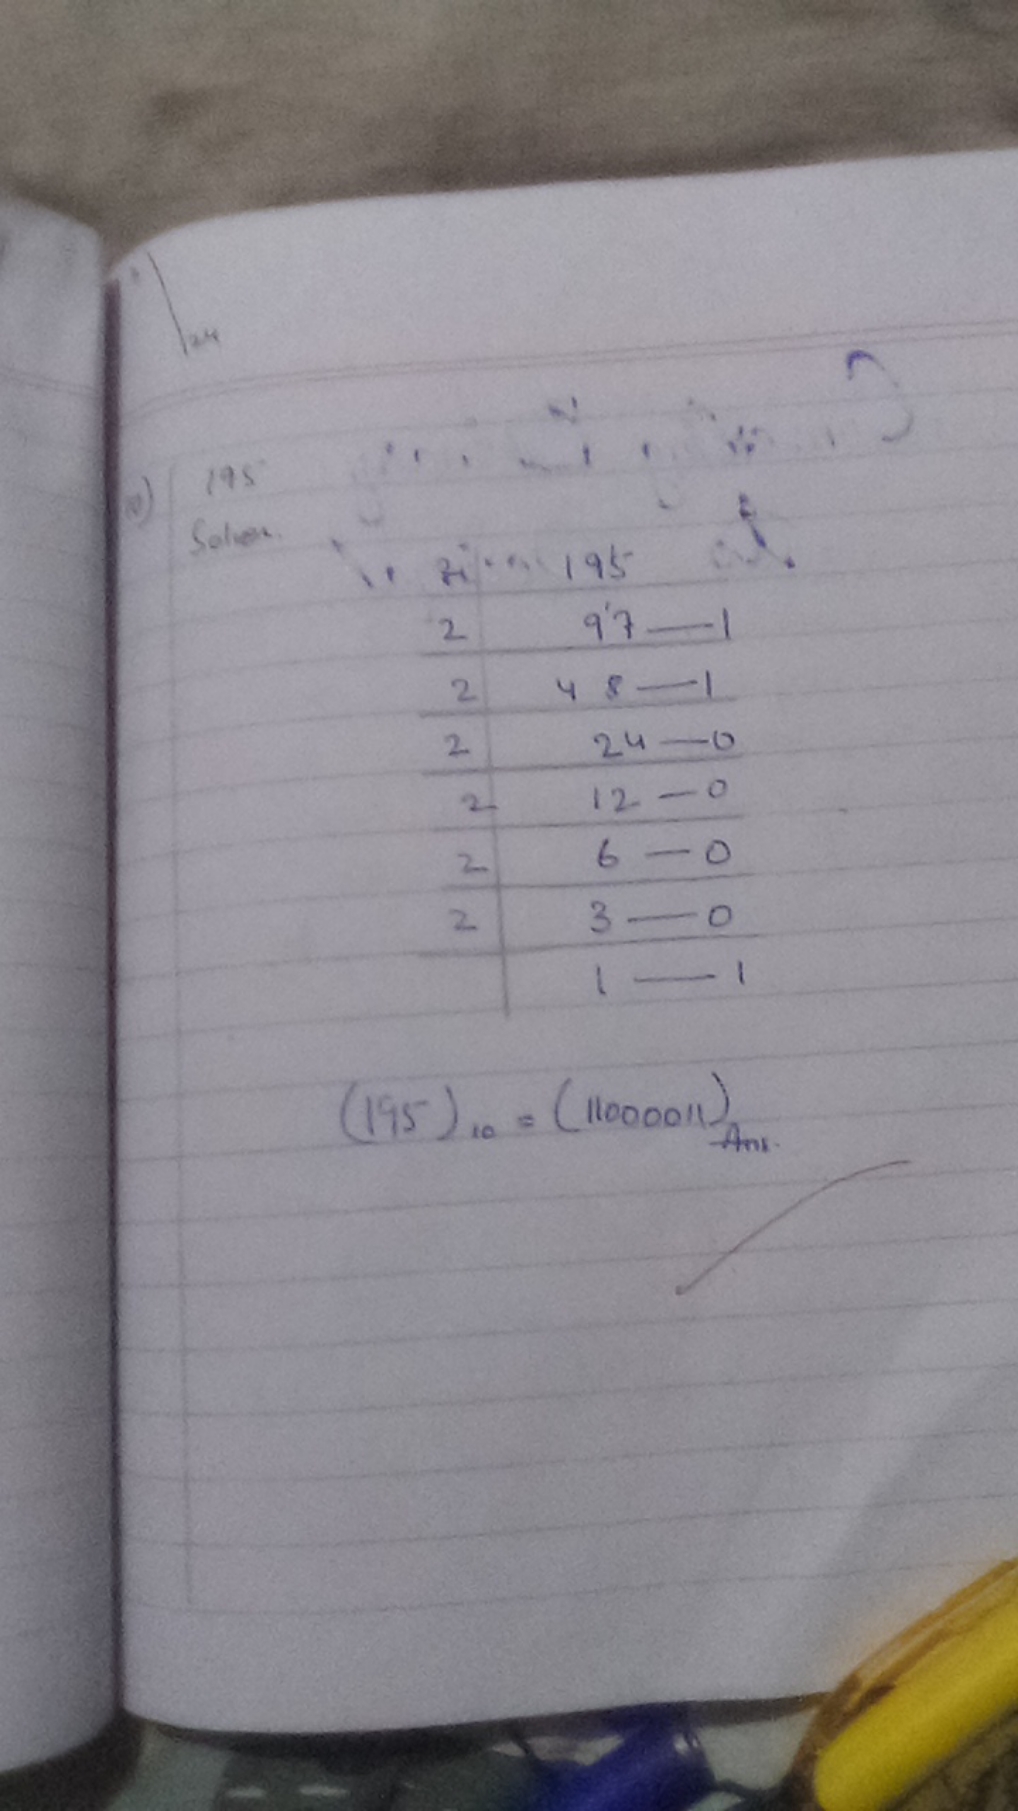 195
Solution.
2 195
2 97—1
2 48—1
2 24—0
2 12—0
2 6—0
2 3—0
1—1
(195)10 = (11000011) Ans.